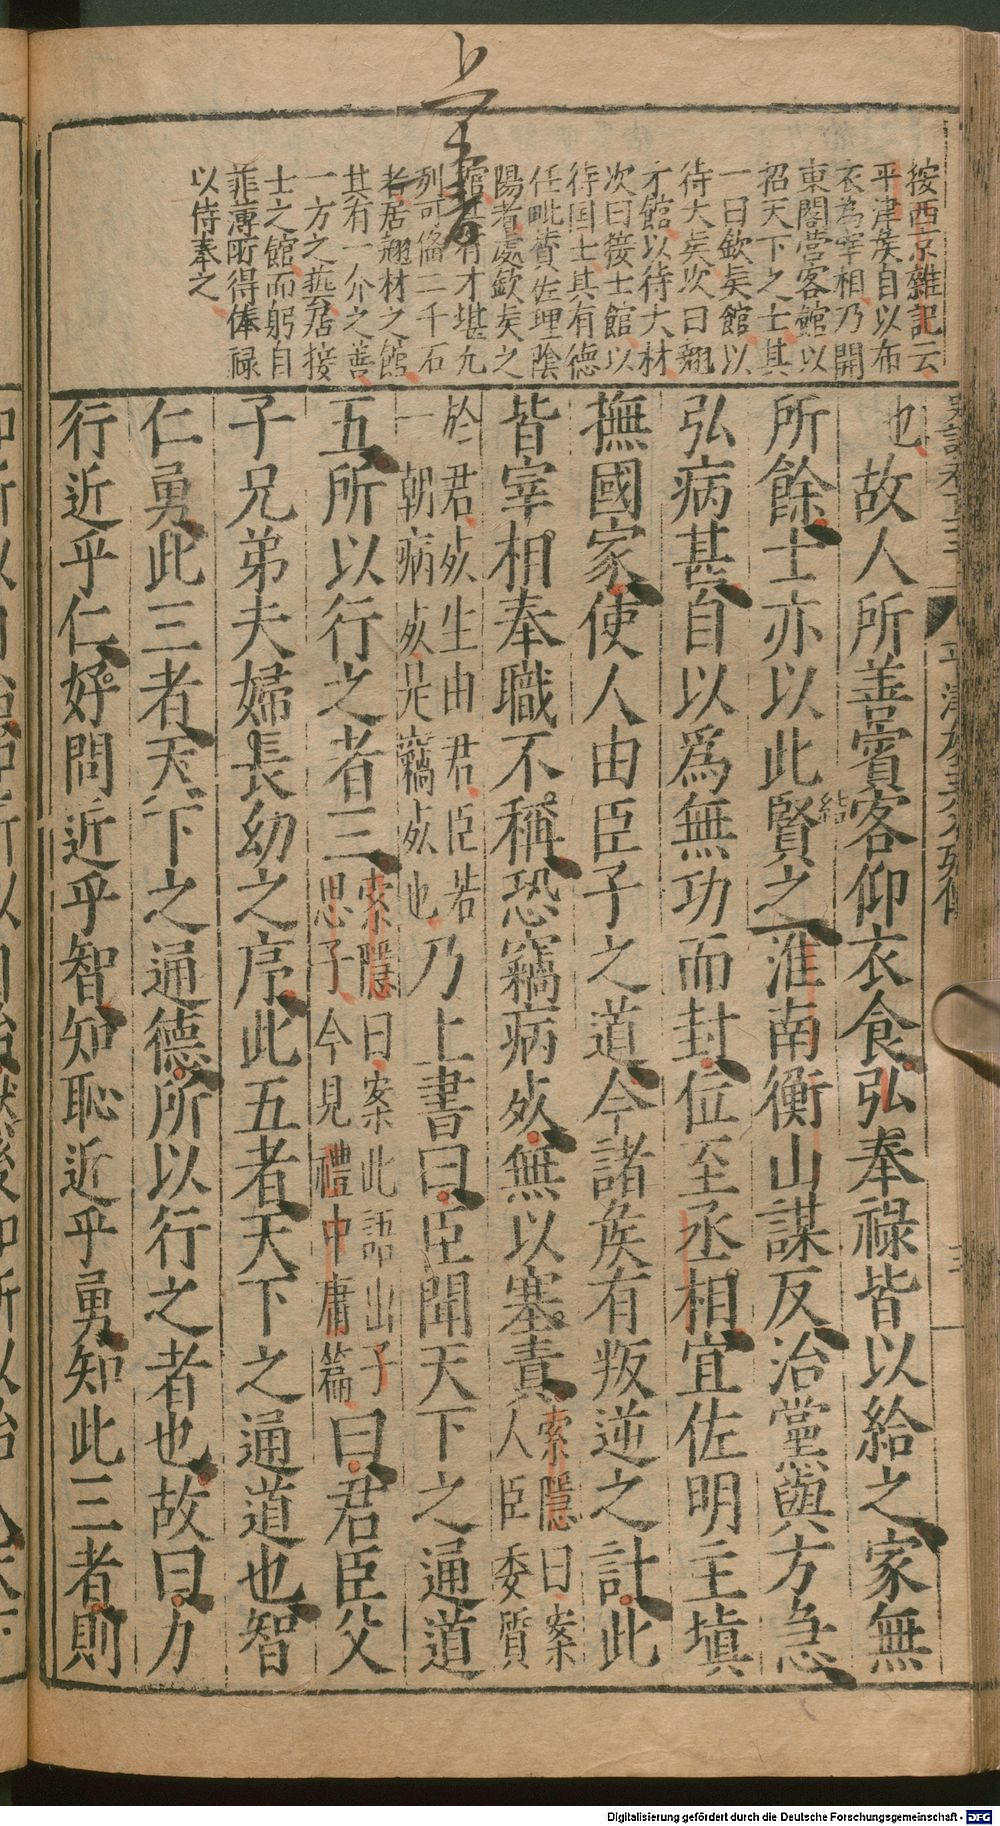 按西京雜記云
平津矦自以布
衣為宰相乃開
東閣營客館以
招天下之士其
一曰欽矣館以
待大矣次曰翹
才館以待大材
次曰接士館以
待国士其有德
任毗賛佐理陰
陽者處欽矣之
有才堪九
列可俻二千石
者居翹材之館
其有一介之善
一方之藝居接
士之館而躬自
菲薄所得俸祿
以侍奉之
也故人所善賓客仰衣食弘奉祿皆以給之家無
結
所餘士亦以此賢之淮南衡山謀反治黨與方急
弘病甚自以爲無功而封位至丞相宜佐明主塡
撫國家使人由臣子之道今諸矦有叛逆之計此
皆宰相奉職不稱恐竊病死無以塞責索隱曰案
人臣委質
於君死生由君臣若
一朝病死是竊死也乃上書曰臣聞天下之通道
五所以行之者三索隱曰案此語出子
思子今見禮中庸篇曰君臣父
子兄弟夫婦長幼之序此五者天下之通道也智
仁勇此三者天下之通德所以行之者也故曰力
行近乎仁好問近乎智知恥近乎勇知此三者則
Digitalisierung gefördert durch die Deutsche Forschungsgemeinschaft - DFG